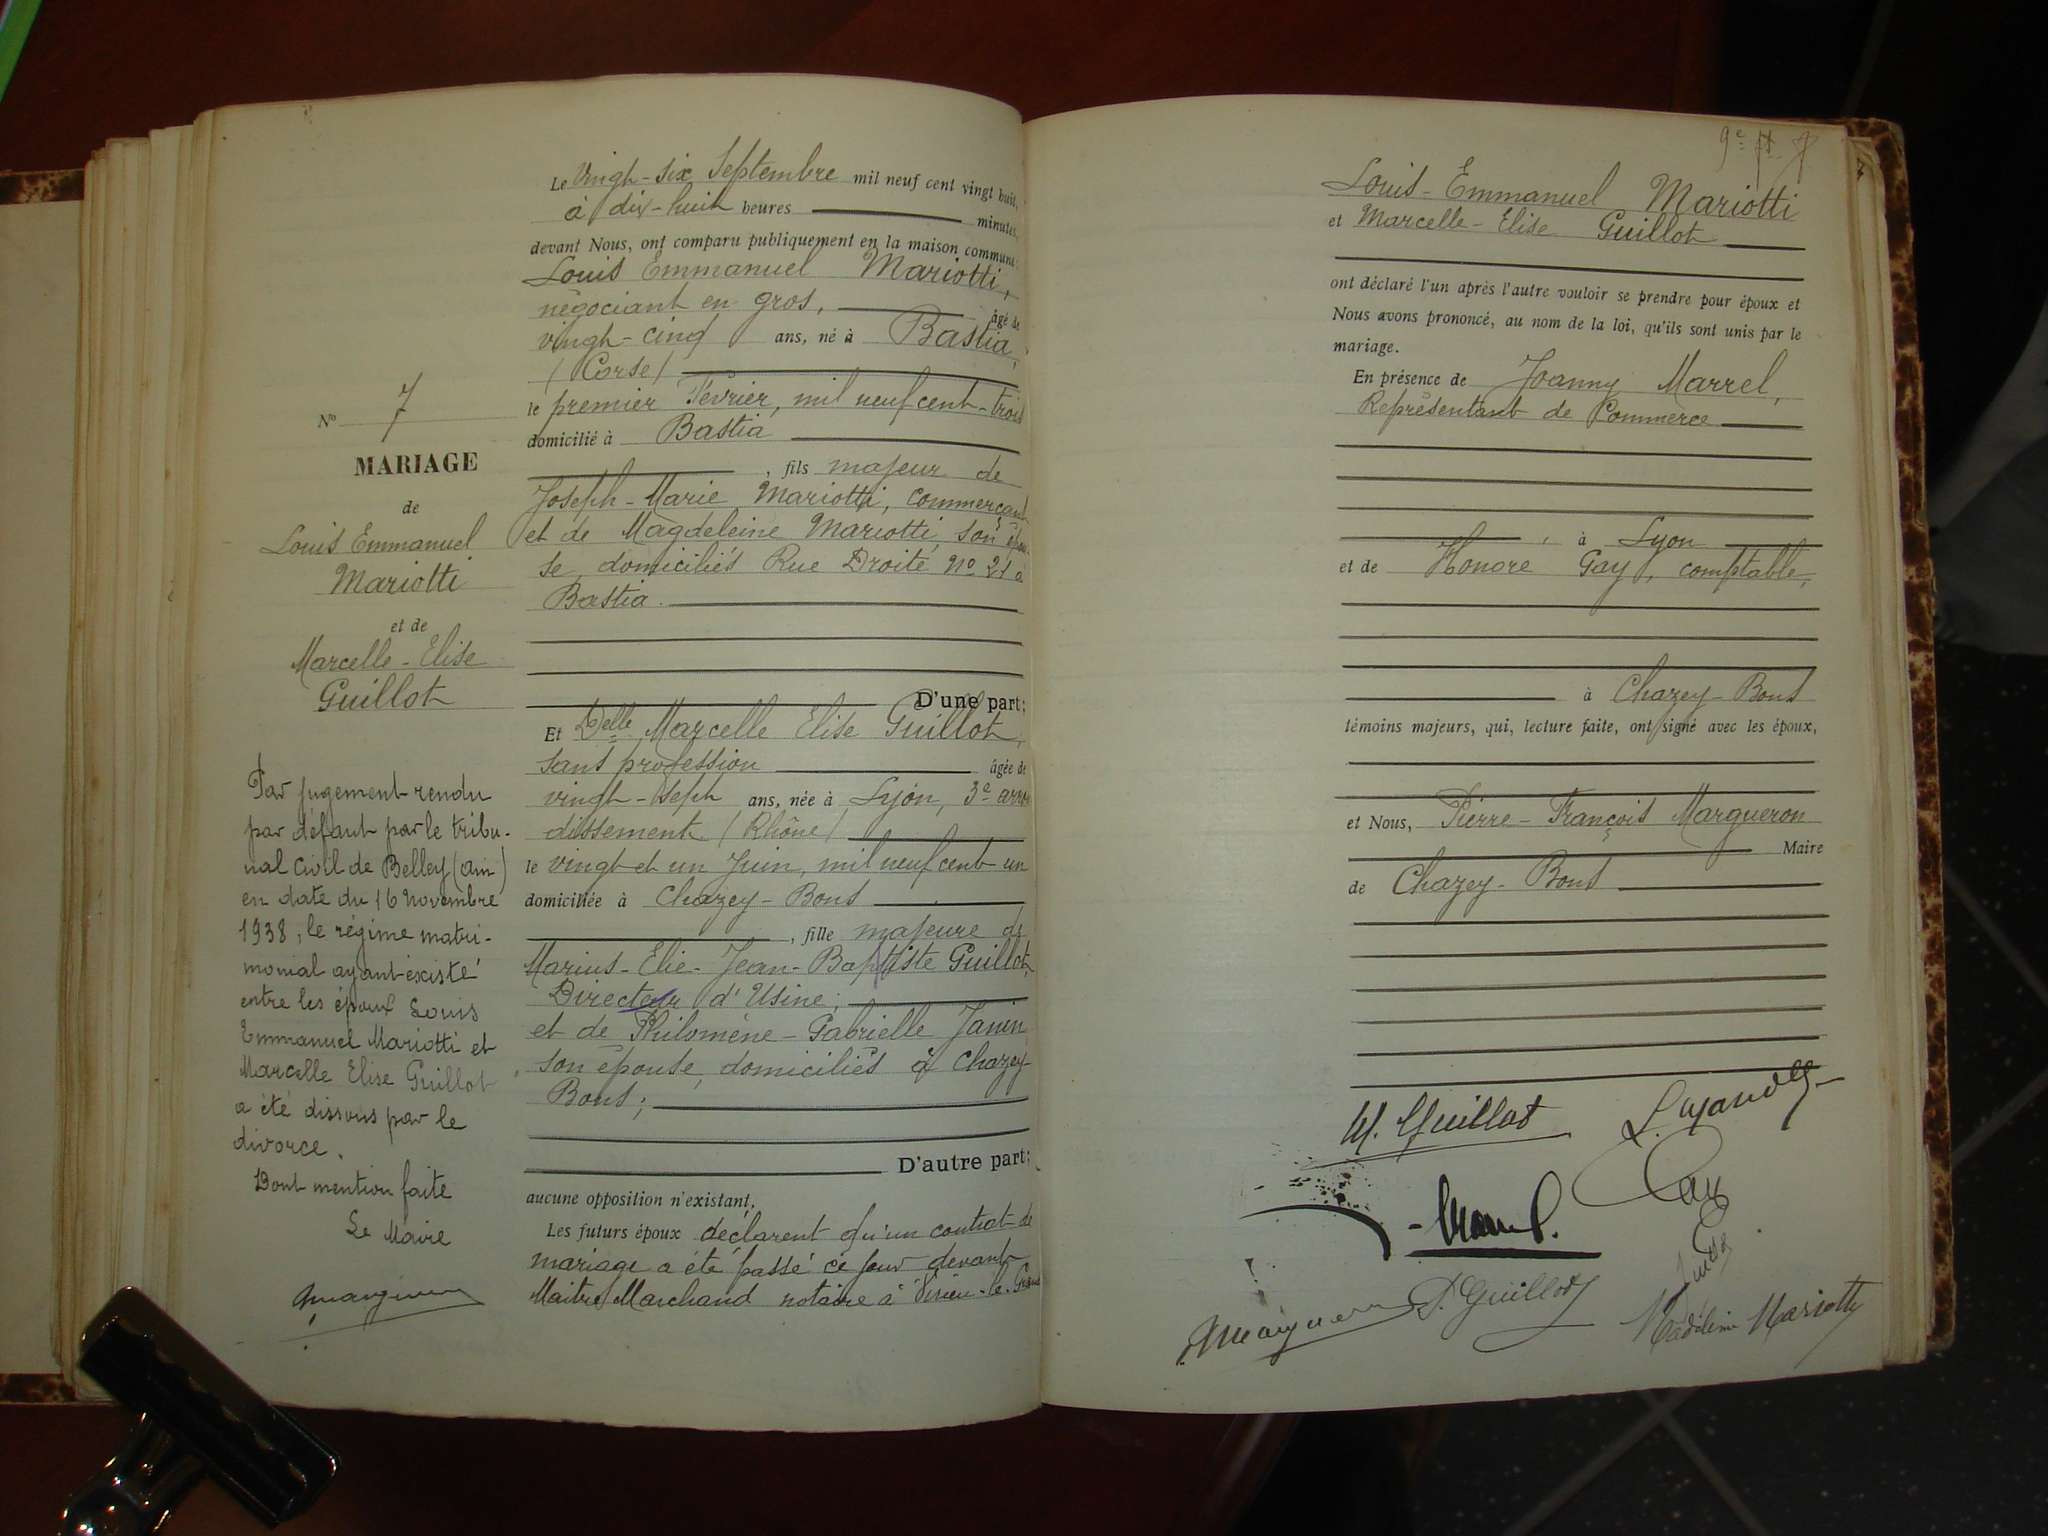 Nº 7
MARIAGE
de
Louis Emmanuel
Mariotti
et de
Marcelle-Elise
Guillot
Par jugement rendu
par défaut par le tribu-
nal Civil de Belley (Ain)
en date du 16 Novembre
1938, le régime matri-
monial ayant existé
entre les époux Louis
Emmanuel Mariotti et
Marcelle Elise Guillot
a été dissous par le
divorce.
Dont mention faite
Le Maire
Le Vingt-six Septembre mil neuf cent vingt huit,
à dix-huit heures minutes,
devant Nous, ont comparu publiquement en la maison commune:
Louis Emmanuel Mariotti,
négociant en gros, âgé de
vingt-cinq ans, né à Bastia,
(Corse)
le premier Février, mil neuf cent-trois
domicilié à Bastia
, fils majeur de
Joseph-Marie Mariotti, commerçant
et de Magdeleine Mariotti, son épou-
se, domiciliés Rue Droite Nº 21 à
Bastia.
D'une part;
Et Delle Marcelle Elise Guillot,
sans profession âgée de
vingt-sept ans, née à Lyon, 3e arron
dissement (Rhône)
le vingt et un Juin, mil neuf cent un
domiciliée à Chazey-Bons
, fille majeure de
Marius-Elie-Jean-Baptiste Guillot,
Directeur d'Usine;
et de Philomène-Gabrielle Janin,
son épouse, domiciliés à Chazey-
Bons;
D'autre part;
aucune opposition n'existant,
Les futurs époux déclarent qu'un contrat de
mariage a été passé ce jour devant
Maître Marchand notaire à Virieu-le-Grand
9e
Louis-Emmanuel Mariotti
et Marcelle-Elise Guillot
ont déclaré l'un après l'autre vouloir se prendre pour époux et
Nous avons prononcé, au nom de la loi, qu'ils sont unis par le
mariage.
En présence de Joanny Marrel,
Représentant de Commerce
, à Lyon
et de Honoré Gay, comptable,
à Chazey-Bons
témoins majeurs, qui, lecture faite, ont signé avec les époux,
et Nous, Pierre-François Margueron
Maire
de Chazey-Bons
M. Guillot
P. Guillot
Madeleine Mariotti